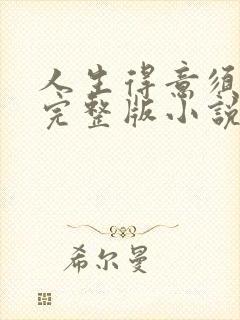 人生得意须
完整版小説
希尔曼